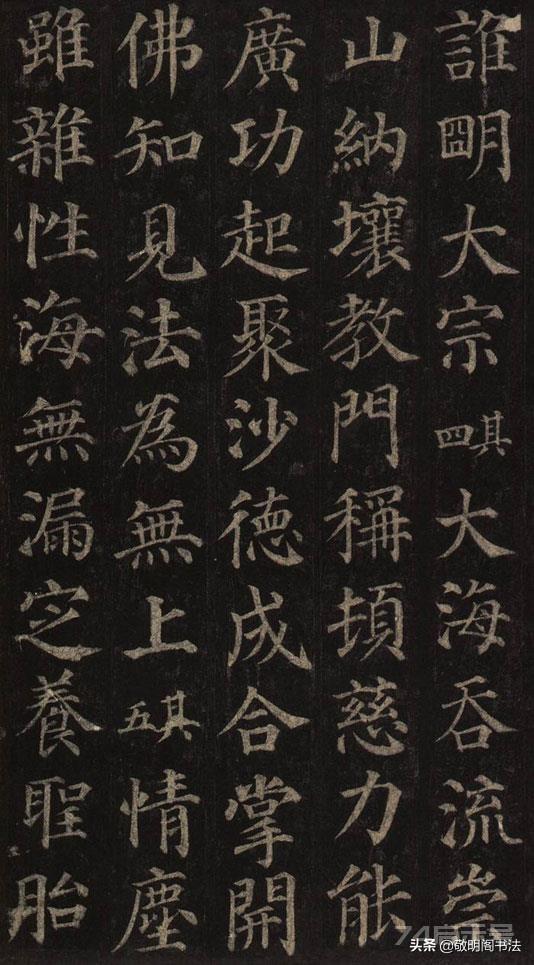 誰朙大宗其四大海吞流崇
山納壤教門稱頓慈力能
廣功起聚沙徳成合掌開
佛知見法為無上其五情塵
雖雜性海無漏㝎養聖胎
头条 @敬明阁书法